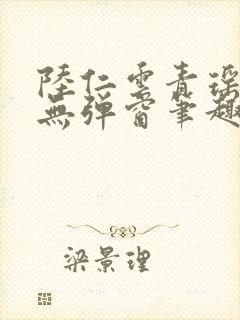 陸仁雲青瑤
無彈窗筆趣
梁景理